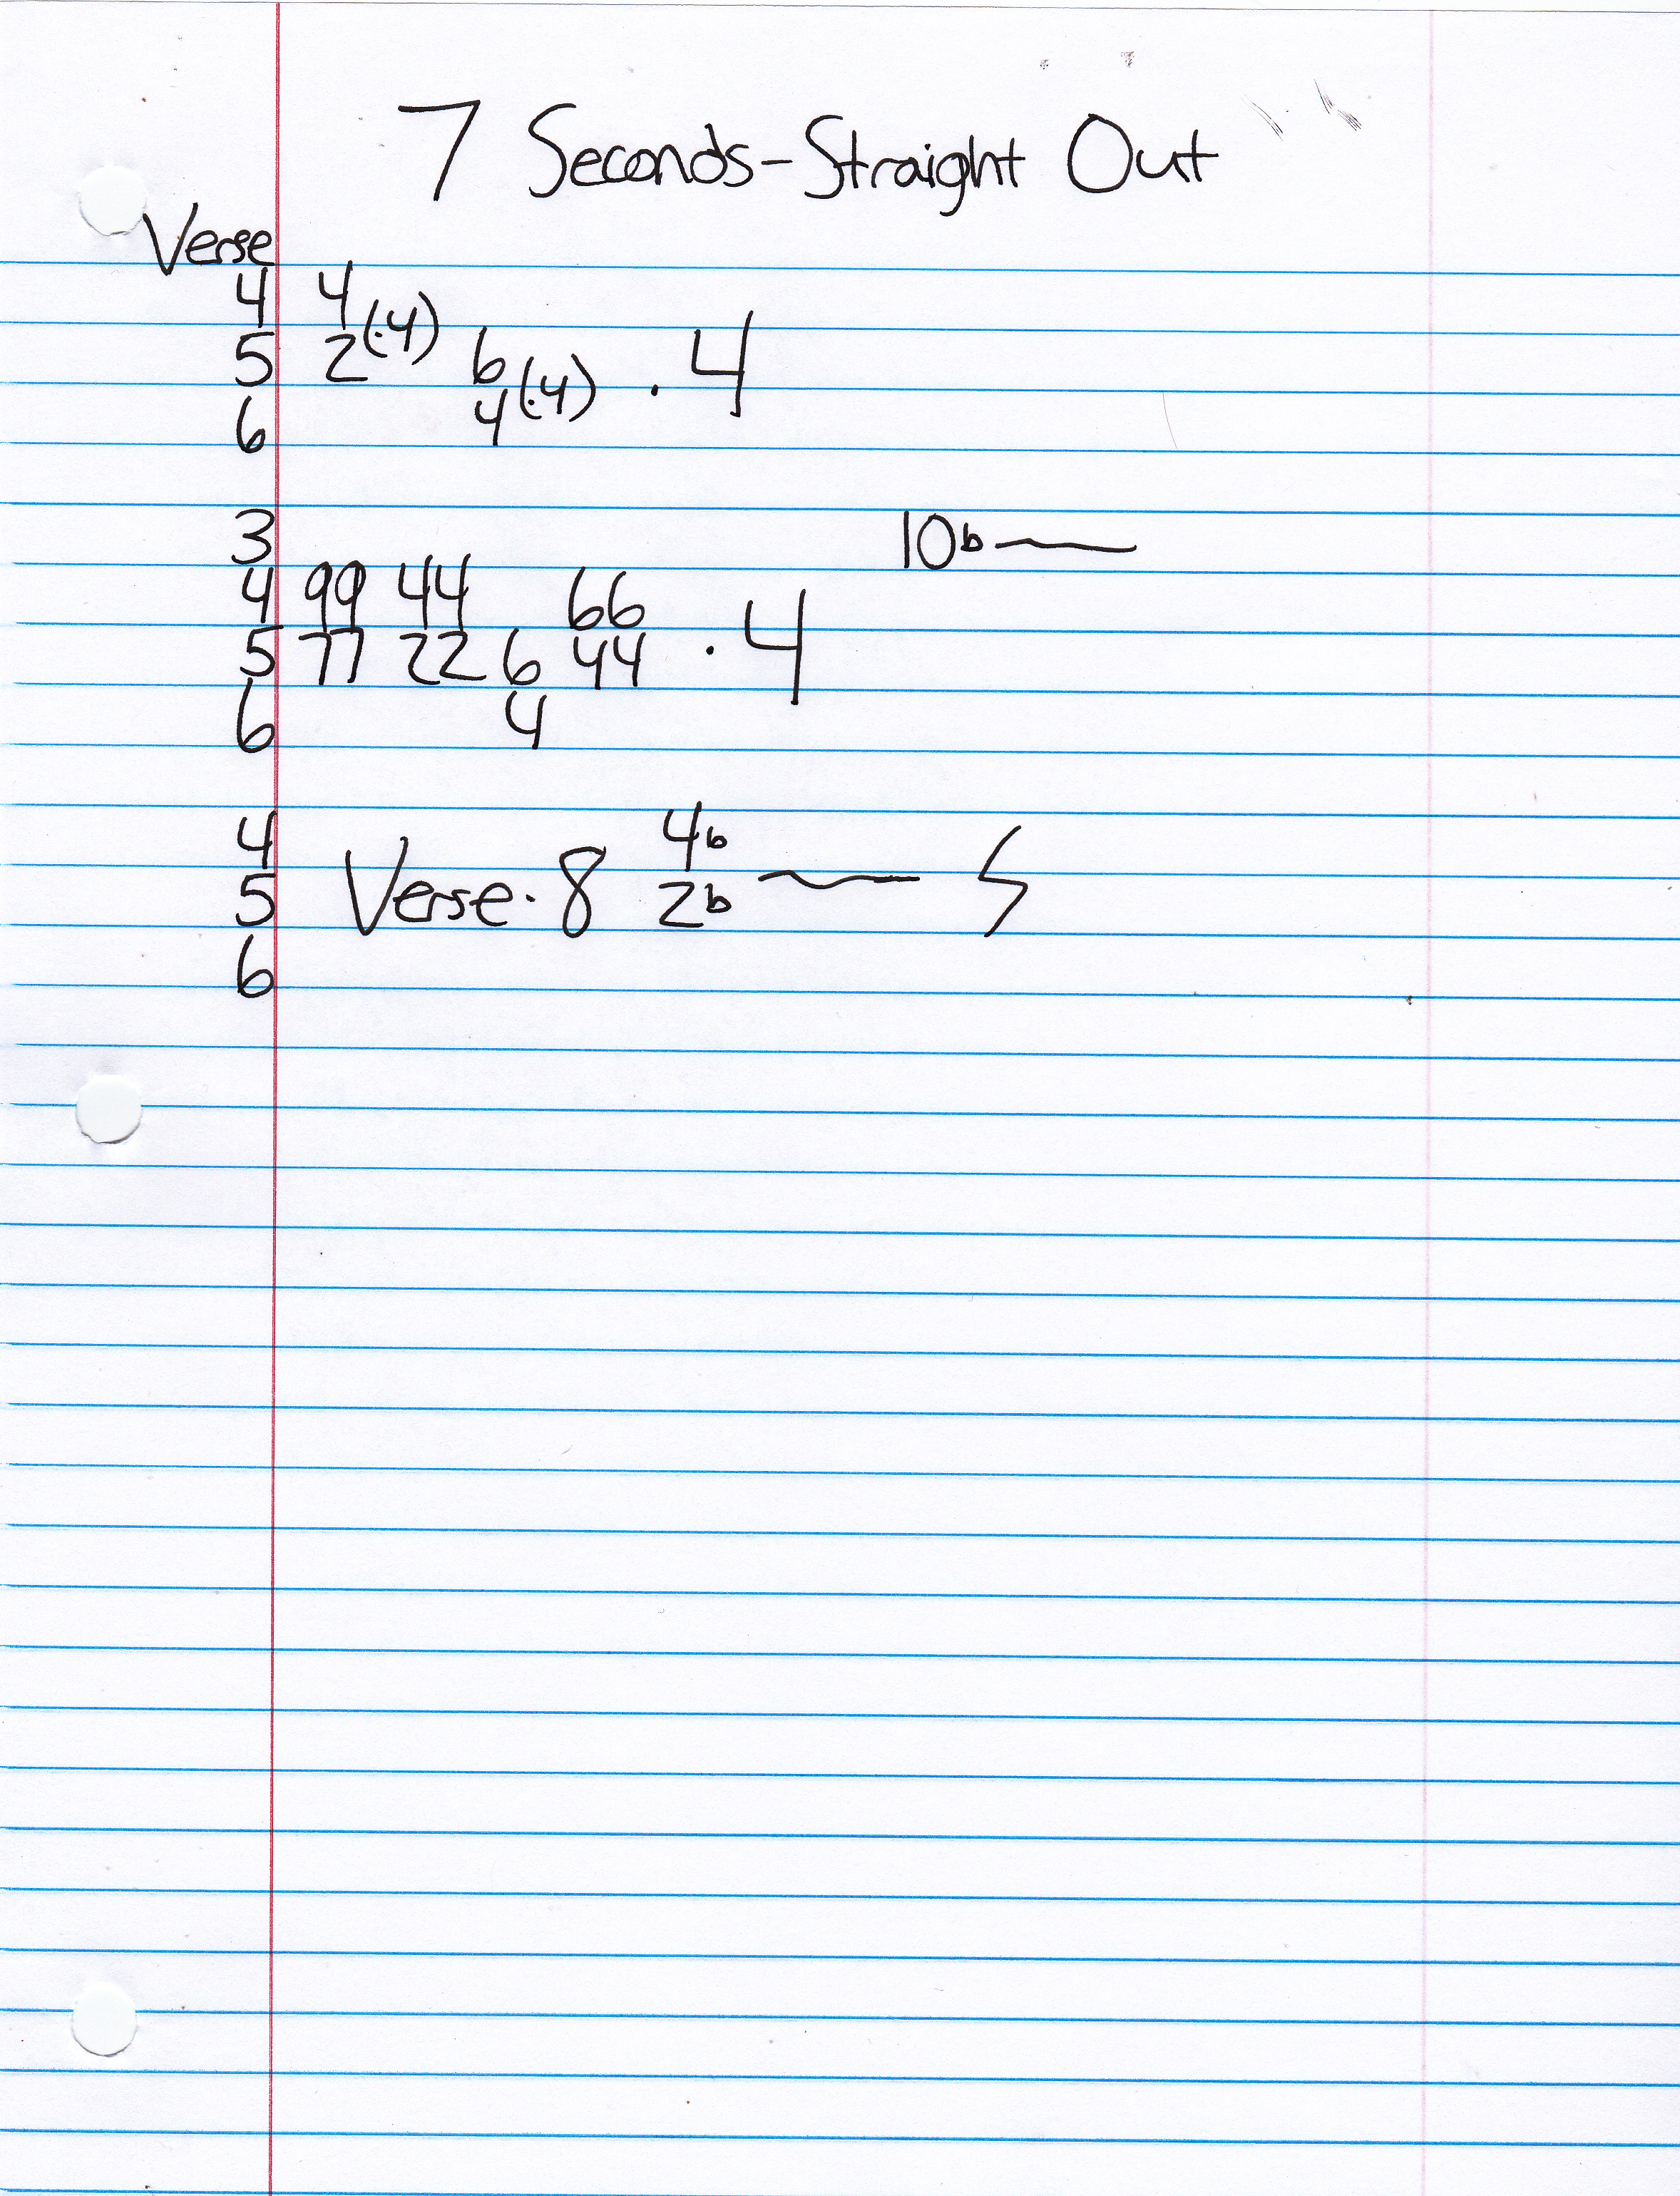 7 Seconds-Straight Out
Verse
4 4
5 2(·4) 6
6 4(·4) · 4
3 10b
4 99 44 66
5 77 22 6 44 · 4
6 4
4 4b
5 Verse·8 2b
6